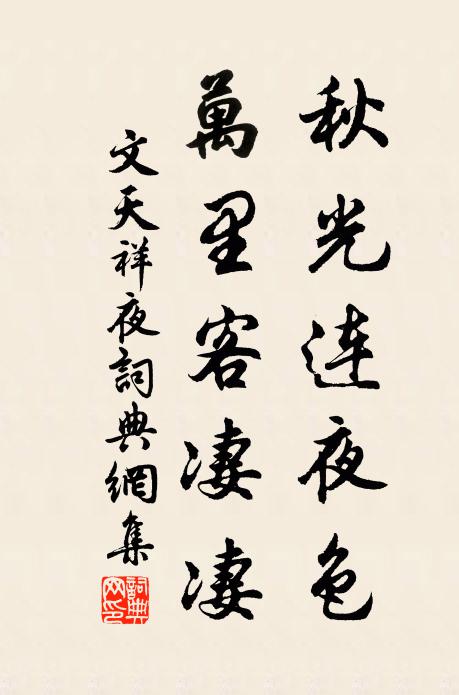 秋光連夜色
萬里客凄凄
文天祥夜詞典網集
詞典
网印